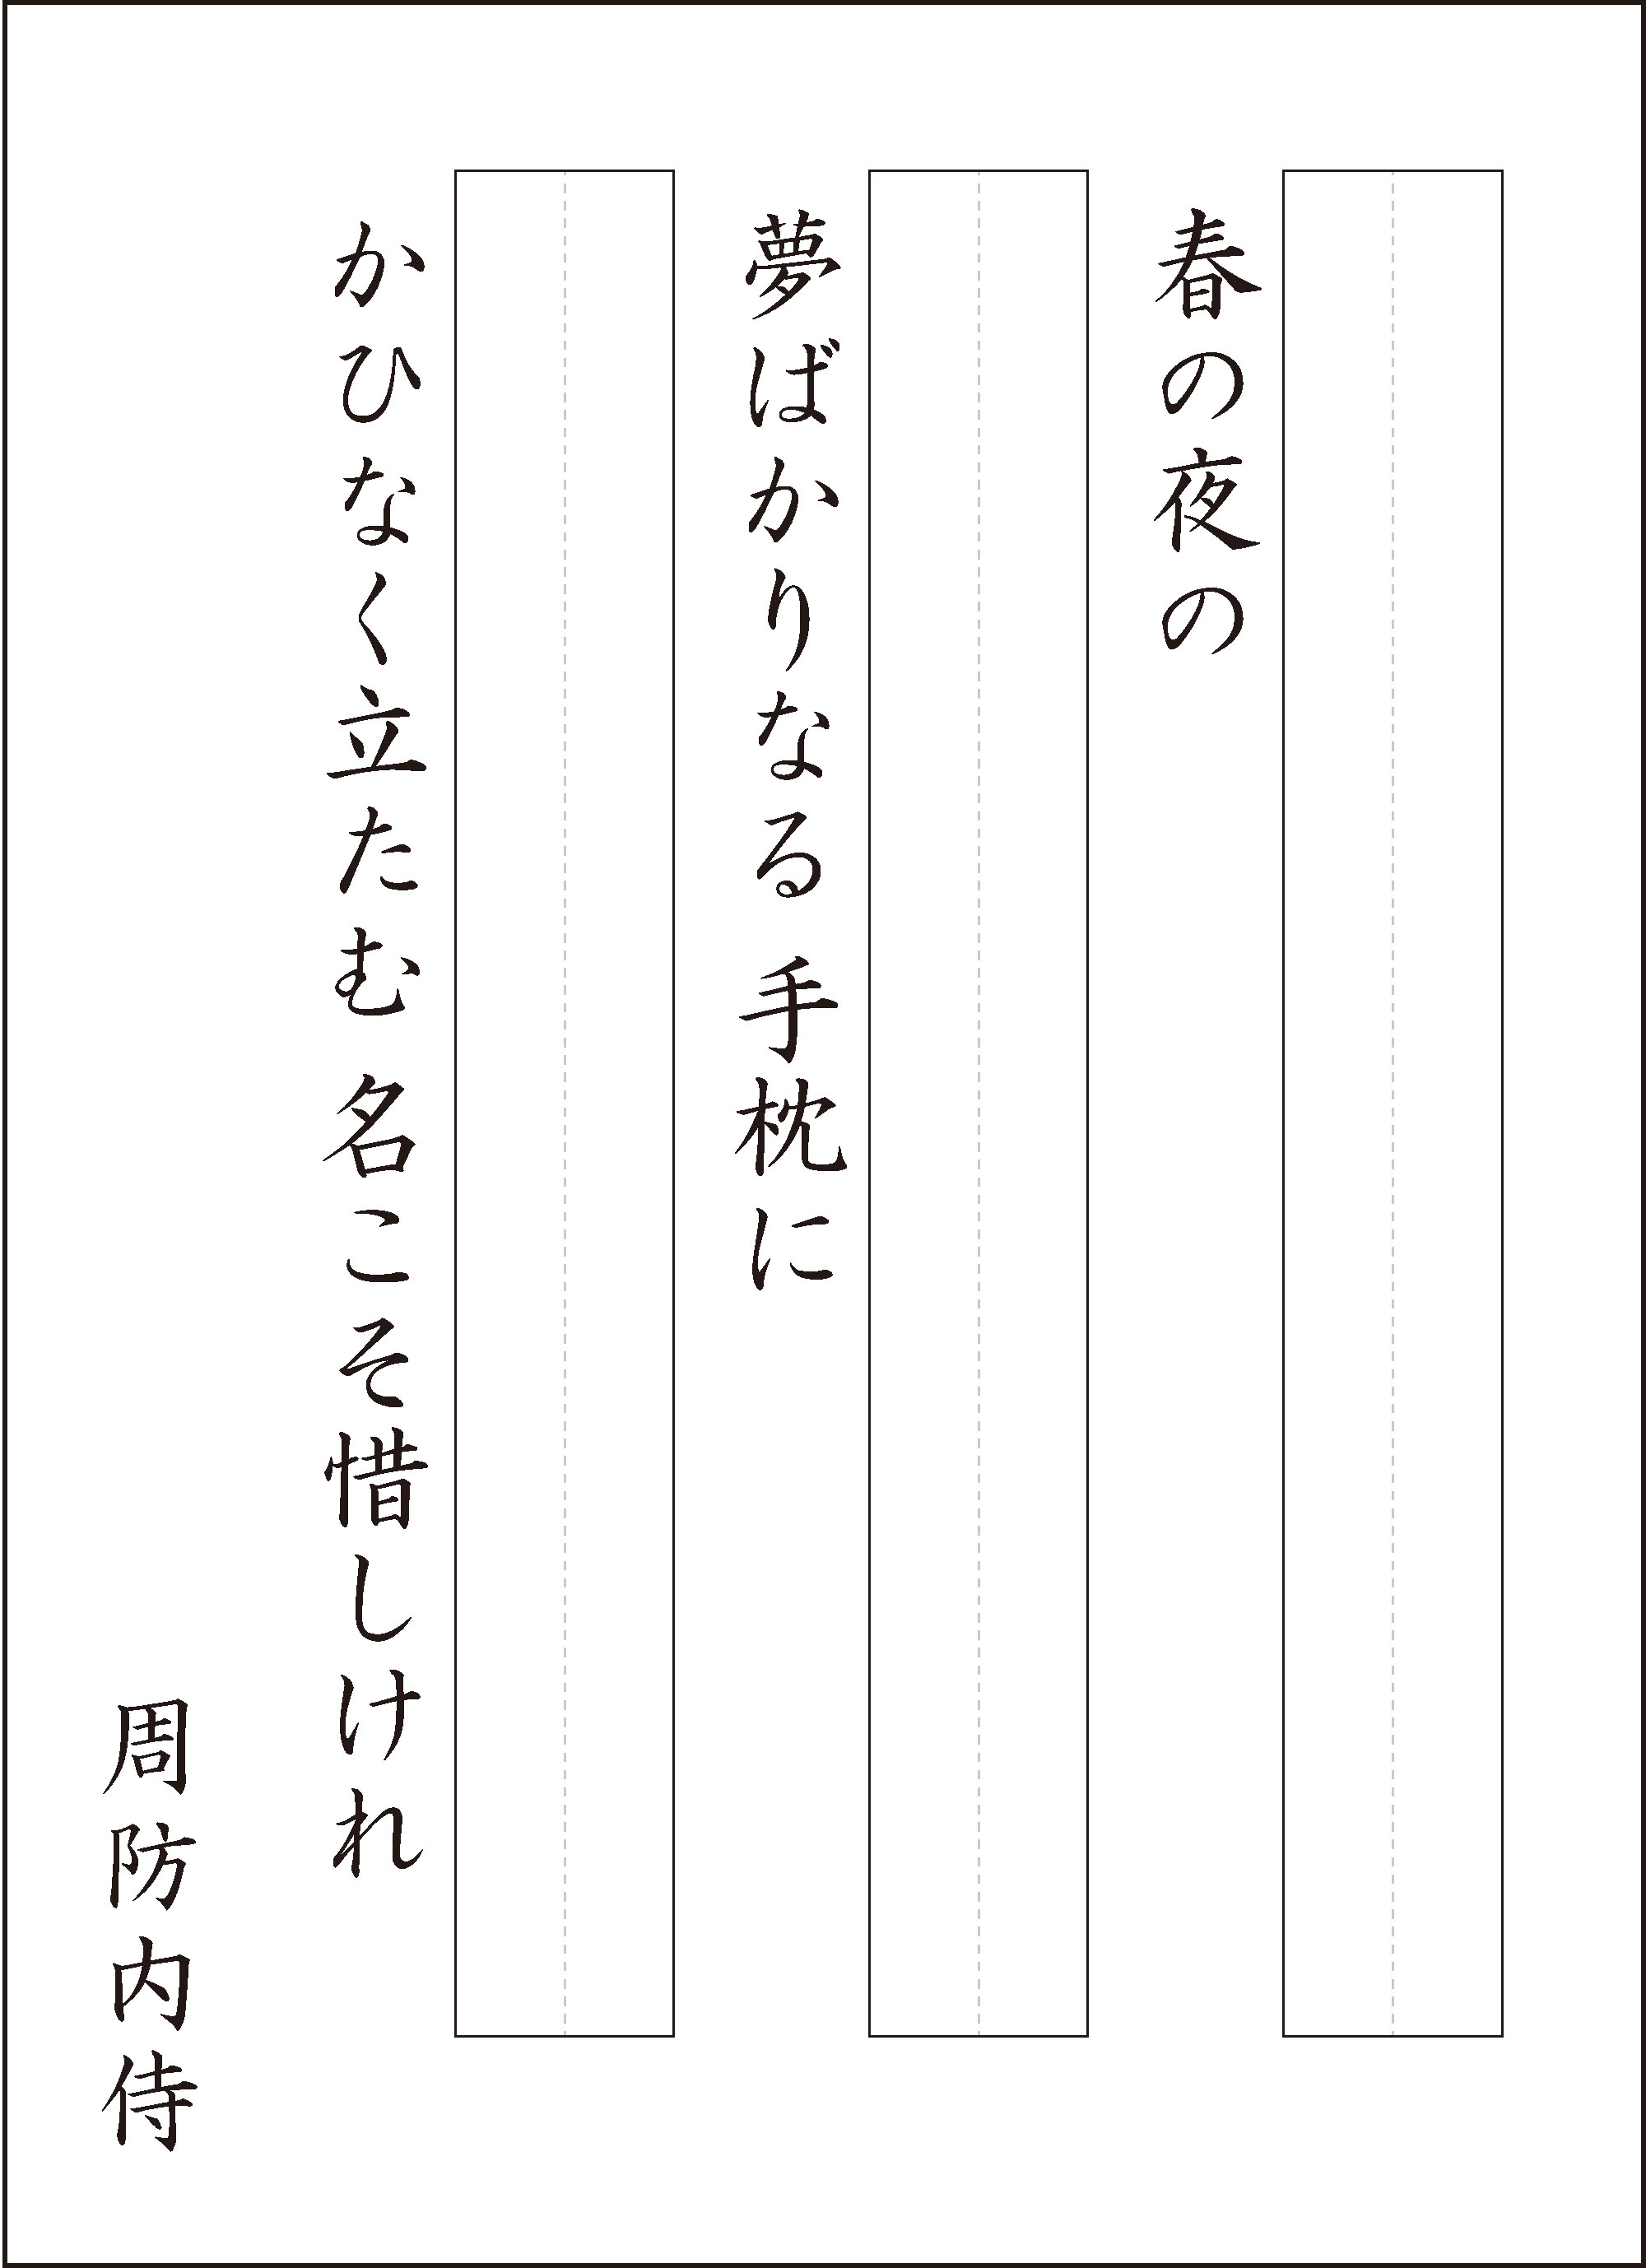 春の夜の
夢ばかりなる 手枕に
かひなく立たむ 名こそ惜しけれ
周防内侍